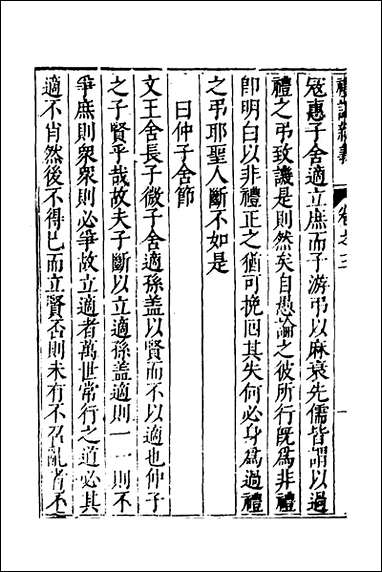 禮記新義 卷之三 一
冦惠子舍適立庶而子游弔以麻衰先儒皆謂以過
禮之弔致譏是則然矣自愚論之彼所行旣爲非禮
卽明白以非禮正之猶可挽囘其失何必身爲過禮
之弔耶聖人斷不如是
曰仲子舍節
文王舍長子微子舍適孫盖以賢而不以適也仲子
之子賢乎哉故夫子斷以立適孫盖適則一一則不
爭庶則衆衆則必爭故立適者萬世常行之道必其
適不肖然後不得已而立賢否則未有不召亂者不